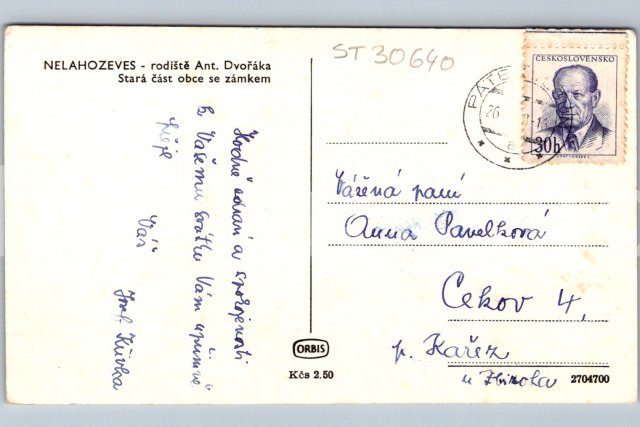 NELAHOZEVES - rodiště Ant. Dvořáka
Stará část obce se zámkem
ST 30640
ČESKOSLOVENSKO
30h
26
Hodně zdraví a spokojenosti
k Vašemu svátku Vám upřímně
přeje
Váš
Josef
Vážená paní
Anna Pavelková
Cekov 4,
p. Kařez
u Zbiroha
ORBIS
Kčs 2.50
2704700